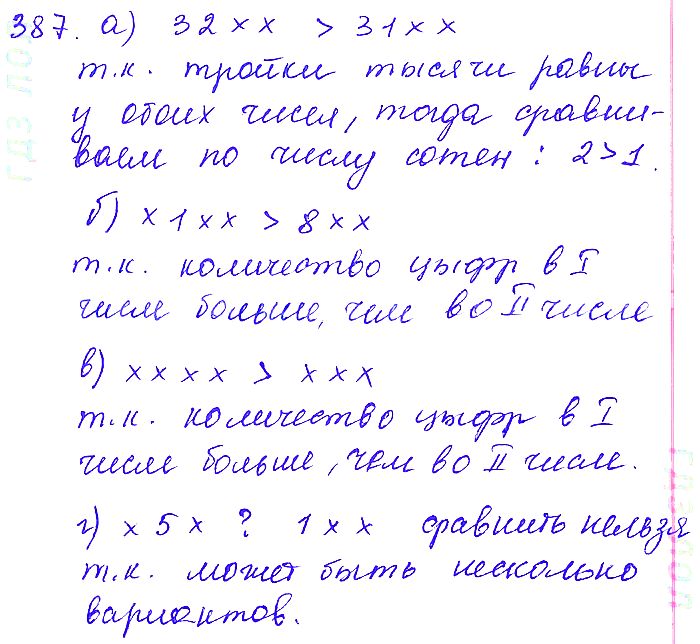 387. а) 32×× > 31××
т.к. тройки тысячи равны
у обоих чисел, тогда сравни-
ваем по числу сотен: 2>1.
б) ×1×× > 8××
т.к. количество цыфр в I
числе больше, чем во II числе
в) ×××× > ×××
т.к. количество цыфр в I
числе больше, чем во II числе.
г) ×5× ? 1×× сравнить нельзя
т.к. может быть несколько
вариантов.